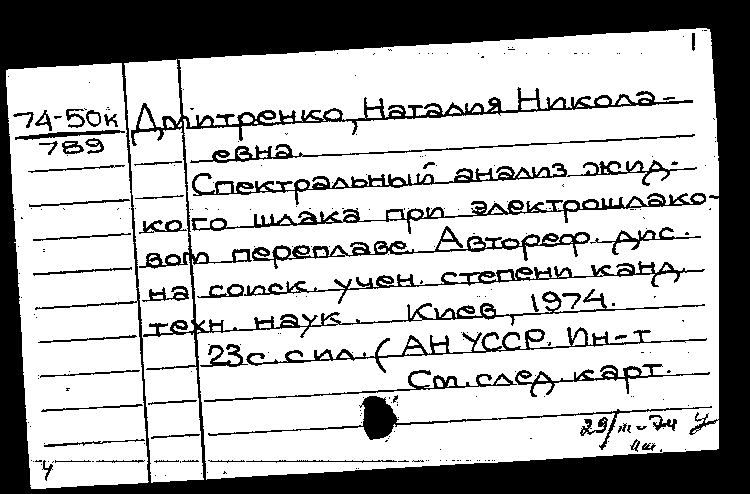 1
74-50к Дмитренко, Наталия Никола-
789
евна.
Спектральный анализ жид-
кого шлака при электрошлако-
вом переплаве. Автореф. дис.
на соиск. учен. степени канд.
техн. наук. Киев, 1974.
23с. с ил. (АН УССР. Ин-т
См. след. карт.
29/III-74
ч